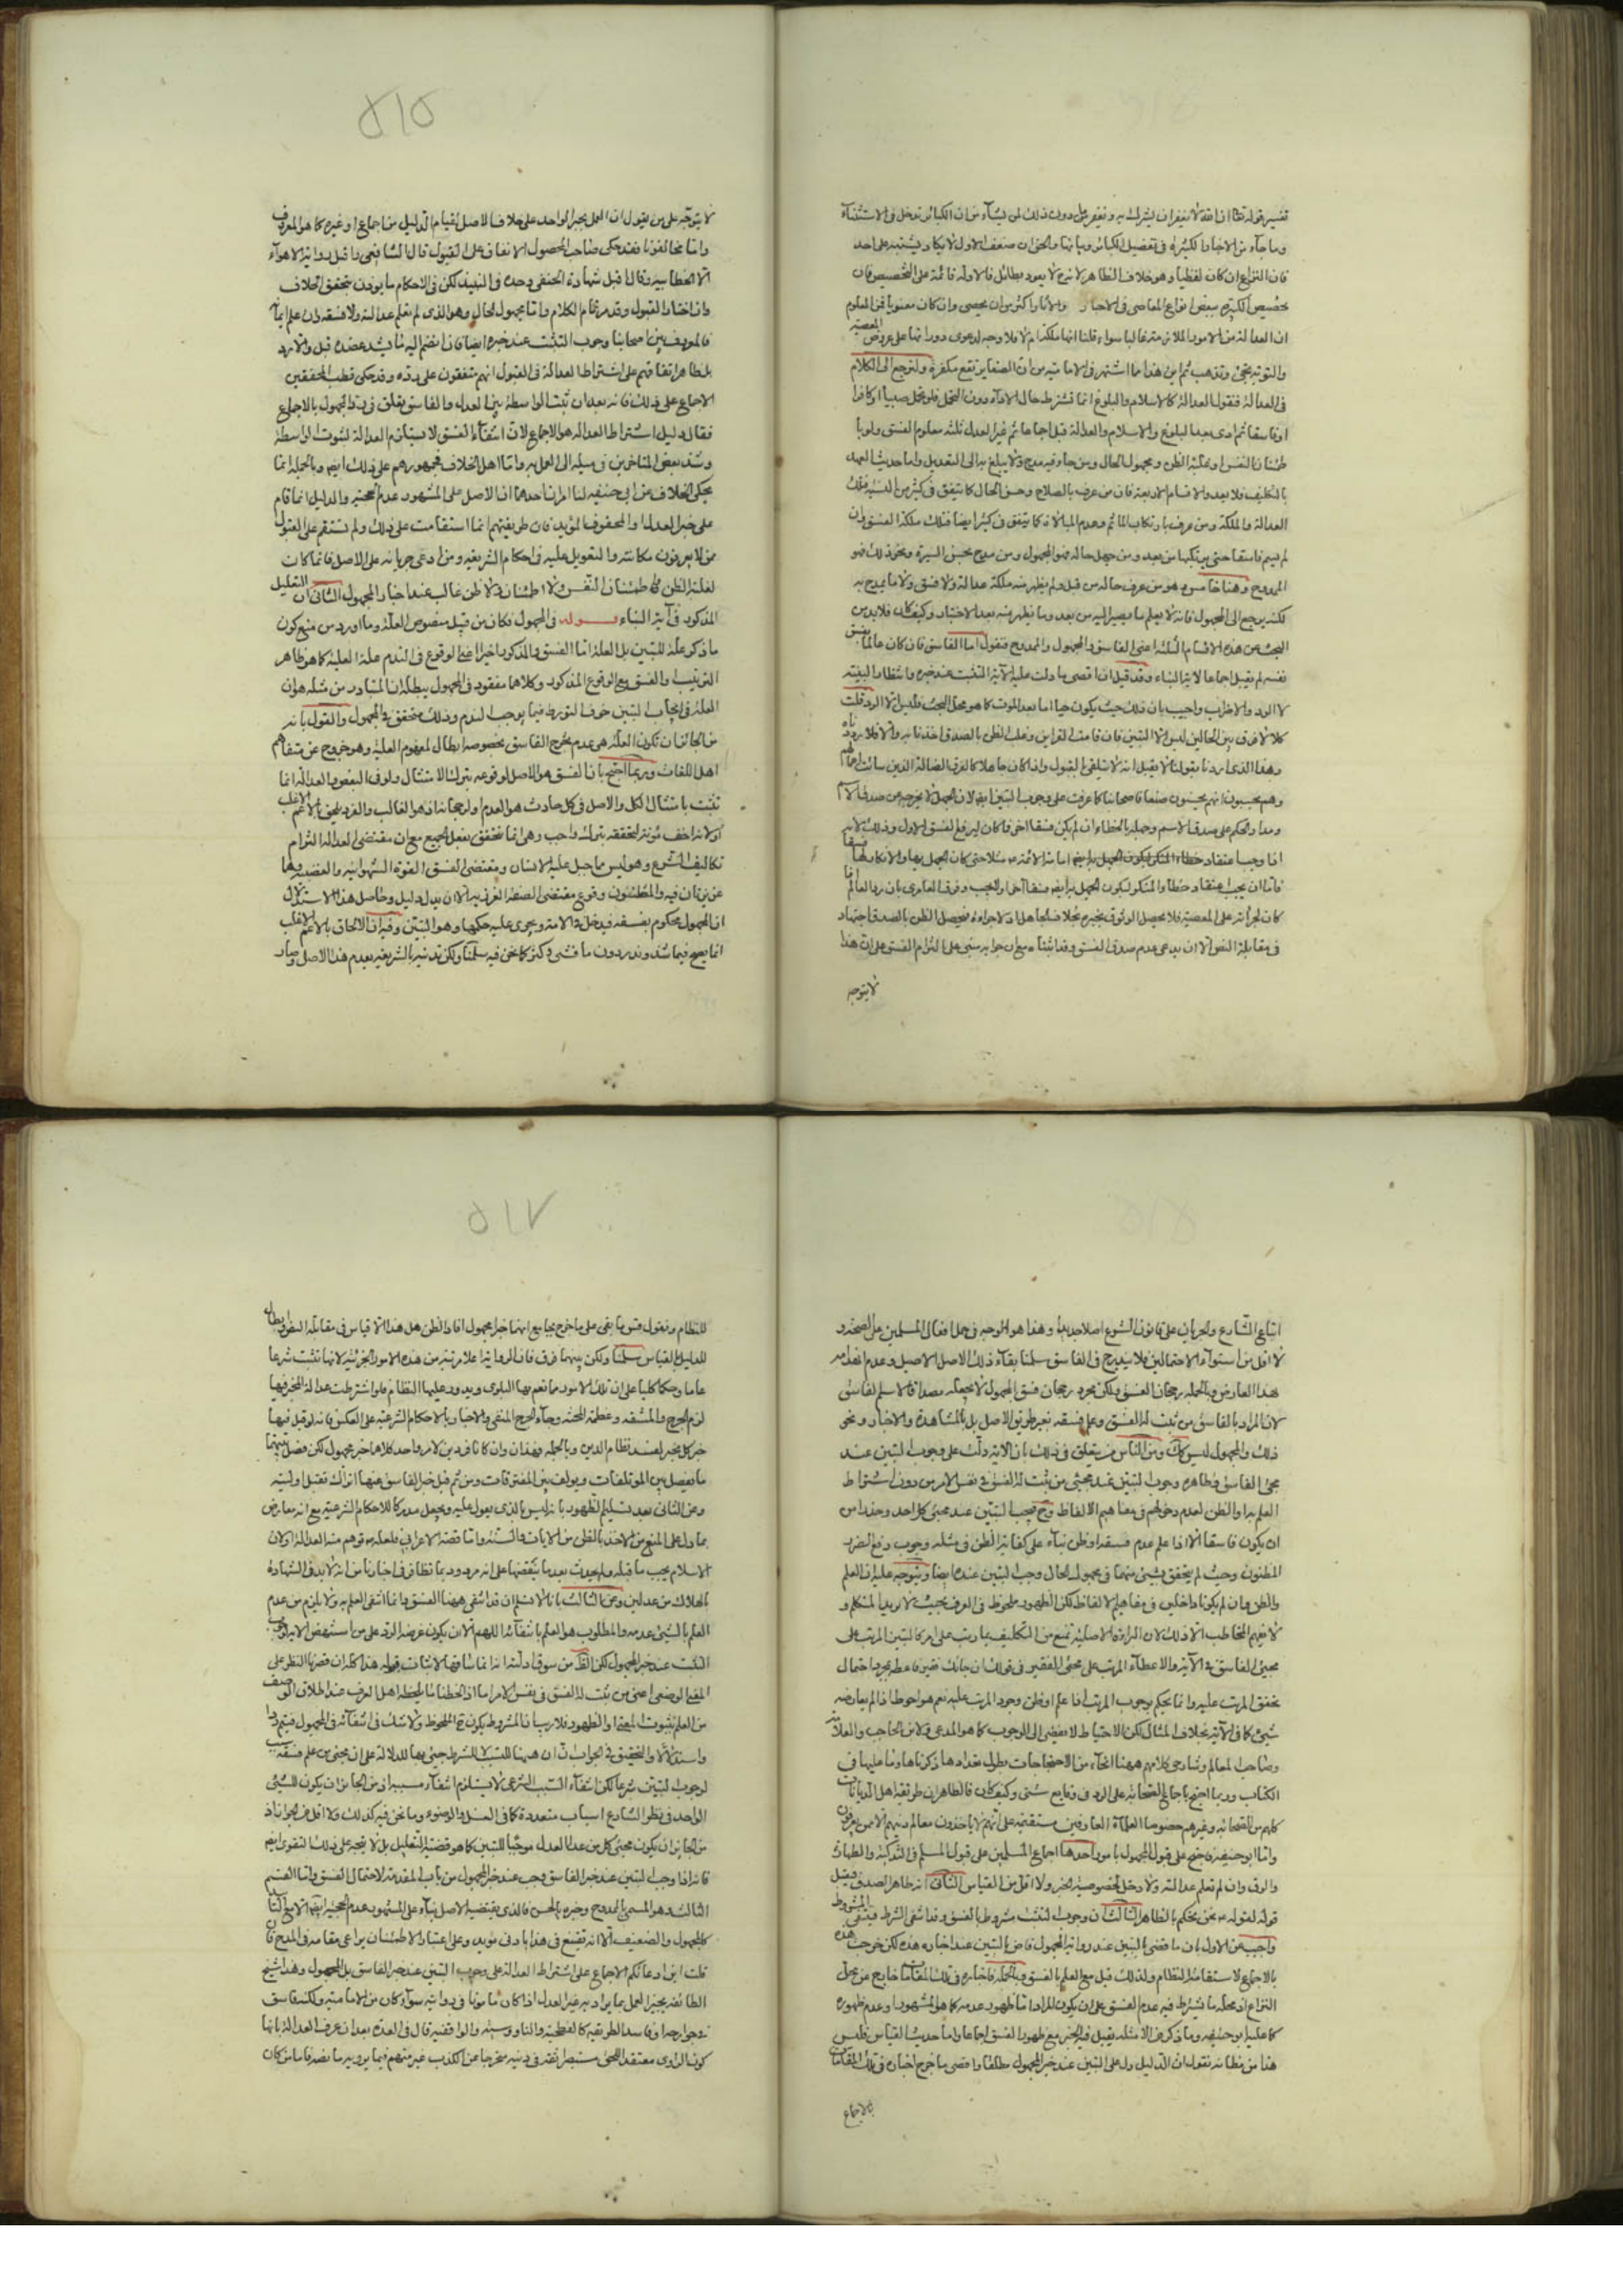 تفسير قوله تعالى ان الله لا يغفر ان يشرك به ويغفر ما دون ذلك لمن يشآء من ان الكبائر تدخل فى الاستثنآء
وما جآء من الاخبار الكثيرة فى تفصيل الكبائر وبيانها والحق ان ضعف الاول لا يكاد يشتبه على احد
فان النزاع ان كان لفظيا وهو خلاف الظاهر لانه لا يعود بطائل فالادلة قائمة على التخصيص فان
تخصيص الكبيرة ببعض انواع المعاصى فى الاخبار والآثار اكثر من ان يحصى وان كان معنويا فمن المعلوم
ان العدالة من الامور اللازمة غالبا سواء قلنا انها ملكة ام لا فلا وجه لدعوى دورانها على عروض المعصية
والتوبة تجئ وتذهب ثم اين هذا مما اشتهر فى الامامية من ان الصغاير تقع مكفرة ولنرجع الى الكلام
فى العدالة فنقول العدالة كالاسلام والبلوغ انما تشترط حال الادآء دون التحمل فلو تحمل صبيا او كافرا
او فاسقا ثم ادى بعد البلوغ والاسلام والعدالة قبل اجماعا ثم غير العدل ثلثة معلوم الفسق ولو با
طمئنان النفس او بغلبة الظن ومجهول الحال ومن جاء فيه مدح ولا يبلغ به الى التعديل واما حديث العهد
بالتكليف فلا يعدو الاقسام الاربعة فان من عرف بالصلاح وحسن الحال كما يتفق فى كثير من الناس فتلك
العدالة والملكة ومن عرف بارتكاب المآثم وعدم المبالاة كما يتفق فى كثير ايضا فتلك ملكة الفسق وان
لم يسم فاسقا حتى يرتكبها من بعد ومن جهل حاله فهو المجهول ومن مدح بحسن السيرة ونحو ذلك فهو
الممدوح وهنا خامس وهو من عرف حاله من قبل ولم يظهر منه ملكة عدالة ولا فسق ولا ما يمدح به
لكنه يرجع الى المجهول فانه لا يعلم ما يصير اليه من بعد وما يظهر منه بعد الاختبار وكيف كان فلا بد من
البحث عن هذه الاقسام الثلثة اعنى الفاسق والمجهول والممدوح فنقول اما الفاسق فان كان عالما بفسق
نفسه لم يقبل اجماعا لاية النباء وقد قيل ان اقصى ما دلت عليه الآية التثبت عند خبره وانتظار البينة
لا الرد والاضراب واجيب بان ذلك حيث يكون حيا اما بعد الموت كما هو محل البحث فليس الا الرد قلت
كلا لا فرق بين الحالين ليس الا التبين فان قامت القراين وغلب الظن بالصدق اخذنا به والا فلا
وهذا الذى اردنا بقولنا لا يقبل انه لا يتلقى بالقبول واذا كان جاهلا كالفرق الضالة الذين سائت اعمالهم
وهم يحسبون انهم يحسنون صنعا فاصحابنا كما عرفت على وجوب التبين ايضا لان الجهل لا يخرجه عن صدق الاسم
ومدار الحكم على صدق الاسم وجهله بالخطاء ان لم يكن فسقا اخر فما كان ليرفع الفسق الاول وذلك لانه
كان لجرأته على المعصية فلا يحصل الوثوق بخبره بخلاف الجاهل اذ لا جراءة فيحصل الظن بالصدق اجتهاد
فى مقابلة النص الا ان يدعى عدم صدق الفسق وقد اثبتناه مع ان جوابه مبنى على التزام الفسق على ان هذا
لا يتوجه
٥١٥
لا يتوجه على من يقول ان العمل بخبر الواحد على خلاف الاصل لقيام الدليل من اجماع او غيره كما هو المعروف
واما مخالفونا فقد حكى صاحب المحصول الاتفاق على القبول قال الشافعى واقبل رواية الاهوآء
الا الخطابيه وقال اقبل شهادة الحنفى وحده فى النبيذ لكن فى الاحكام ما يؤذن بتحقق الخلاف
وانه اختار القبول وقد مر تمام الكلام واما مجهول الحال وهو الذى لم تعلم عدالته ولا فسقه وان علم ايمانه
فالمعروف بين اصحابنا وجوب التثبت عند خبره ايضا فان انضم اليه ما يشد عضده قبل والا رد
بل ظاهر اتفاقهم على اشتراط العدالة فى القبول انهم متفقون على رده وقد حكى قطب المحققين
الاجماع على ذلك فانه بعد ان ثبت الواسطة بين العدل والفاسق تعلق فى رد المجهول بالاجماع
فقال دليل اشتراط العدالة هو الاجماع لان انتفآء الفسق لا يستلزم العدالة لثبوت الواسطة
وشذ بعض المتأخرين فى ميله الى العمل به واما اهل الخلاف فجمهورهم على ذلك ايضا وبالجملة انما
يحكى الخلاف عن ابى حنيفه لنا امران احدهما ان الاصل على المشهور عدم الحجية والدليل انما قام
على خبر العدل او المحفوف المؤيد فان طريقتهم انما استقامت على ذلك ولم تستقم على القبول
ممن لا يعرفون مكانته والتعويل عليه فى احكام الشريعة ومن ادعى جريانه على الاصل فانما كان
لغلبة الظن او طمئنان النفس ولا اطمئنان ولا ظن غالب عند اخبار المجهول الثانى ان التعليل
المذكور فى آية النباء فى المجهول فكان من قبيل منصوص العلة وما اورد من منع كون
ما ذكر علة للتبين بل العلة اما الفسق والمذكور اخيرا اعنى الوقوع فى الندم علة العلية كما هو ظاهر
الترتيب او الفسق مع الوقوع المذكور وكلاهما مفقود فى المجهول يبطله ان المتبادر من مثله هو ان
العلة فى ايجاب التبين خوف التورط فيما يوجب الندم وذلك متحقق فى المجهول والقول بانه
من الجائز ان تكون العلة هى عدم تحرج الفاسق بخصوصه ابطال لمفهوم العلية وهو خروج عن تفاهم
اهل اللغات وربما احتج بان الفسق هو الاصل لوقوعه بترك الامتثال ولو فى البعض والعدالة انما
تثبت بامتثال الكل والاصل فى كل حادث هو العدم او لرجحانه اذ هو الغالب والفرد يلحق بالاعم الاغلب
او لانه اخف مؤنة لتحققه بترك واجب وهى انما تتحقق بفعل الجميع مع ان مقتضى العدالة التزام
تكاليف الشرع وهو ليس مما جبل عليه الانسان ومقتضى الفسق القوة الشهوانيه والغضبيه وهما
غريزتان فيه والمظنون وقوع مقتضى الصفة الغريزية الا ان يدل دليل وحاصل هذا الاستدلال
ان المجهول محكوم بفسقه فيدخل فى الآية ويجرى عليه حكمها وهو التبين وفيه ان الالحاق بالاعم الاغلب
انما يصح فيما شذ وندر دون ما فشى وكثر كما نحن فيه سلمنا ولكن تدينه بالشريعة يعدم هذا الاصل وصار
اتباع الشارع والجريان على قانون الشرع اصلا جديدا وهذا هو الوجه فى حمل افعال المسلمين على الصحة و
لا اقل من استوآء الاحتمالين فلا يندرج فى الفاسق سلمنا بقآء ذلك الاصل الاصيل وعدم انعدامه
بهذا العارض وبالجملة رجحان الفسق ولكن مجرد رجحان فسق المجهول لا يجعله مصداقا لاسم الفاسق
لان المراد بالفاسق من ثبت له الفسق وعلم فسقه بغير طريق الاصل بل بالمشاهدة والاخبار ونحو
ذلك والمجهول ليس كك ومن الناس من يتعلق فى ذلك بان الآية دلت على وجوب التبين عند
مجئ الفاسق وظاهره وجوب التبين عند مجئ من ثبت له الفسق فى نفس الامر من دون اشتراط
العلم به او الظن لعدم دخولهم فى مفاهيم الالفاظ وح فيجب التبين عند مجئ كل احد وحذرا من
ان يكون فاسقا الا اذا علم عدم فسقه او ظن بنآء على كفاية الظن فى مثله وجوب دفع الضرر
المظنون وحيث لم يتحقق شئ منهما فى مجهول الحال وجب التبين عنده ايضا ويتوجه عليه ان العلم
والظن وان لم يكونا داخلين فى مفاهيم الالفاظ لكن الظهور ملحوظ فى العرف بحيث لا يريد المتكلم و
لا يفهم المخاطب الا ذلك لان البرائة الاصلية تمنع من التكليف بما رتب على امر كالتبين المرتب على
مجئ الفاسق فى الآية والاعطآء المرتب على مجئ الفقير فى قولك ان جائك فقير فاعطه بمجرد احتمال
تحقق المرتب عليه وانما يحكم بوجوب المرتب اذا علم او ظن وجود المرتب عليه نعم هو احوط اذا لم يعارضه
شئ كما فى الآية بخلاف المثال لكن الاحتياط لا يفضى الى الوجوب كما هو المدعى ولابن الحاجب والعلامة
وصاحب المعالم وشارحى كلامهم ههنا انحآء من الاحتجاجات يطول تعدادها ذكرناها وما عليها فى
الكتاب وربما احتج باجماع الصحابة على الرد فى وقايع شتى وكيف كان فالظاهر ان طريقة اهل الديانات
كلهم من الصحابة وغيرهم خصوصا العلمآء العارفين مستقيمة على انهم لا ياخذون معالم دينهم الا ممن يعرفون
واما ابو حنيفه فاحتج على قبول المجهول بامور احدها اجماع المسلمين على قبول المسلم فى التذكية والطهارة
والرق وان لم تعلم عدالته ولا دخل لخصوصية الخبر ولا اقل من القياس الثانى انه ظاهر الصدق فيقبل
قوله لقوله ص نحن نحكم بالظاهر الثالث ان وجوب التثبت مشروط بالفسق وقد انتفى الشرط فينتفى المشروط
واجيب عن الاول بان ما قضى بالتبين عند رواية المجهول قاض بالتبين عند اخباره هذه لكن خرجت هذه
بالاجماع لاستقامة النظام ولذلك قبل مع العلم بالفسق وبالجملة فاخباره فى تلك المقامات خارج عن محل
النزاع اذ محله ما يشترط فيه عدم الفسق على ان يكون المراد اما ظهور عدمه كما هو المشهور او عدم ظهوره
كما عليه ابو حنيفه وما ذكر فى الامثلة يقبل فيه الخبر مع ظهور الفسق اجماعا واما حديث القياس فليس
هنا من مظانه نقول ان الدليل دل على التبين عند خبر المجهول مطلقا واقصى ما خرج اخباره فى تلك المقامات
بالاجماع
٥١٧
للنظام ونقول فيما بقى على ما خرج بجامع انهما خبر مجهول افاد الظن هل هذا الا قياس فى مقابلة النص وابطال
للدليل بالقياس سلمنا ولكن بينهما فرق فان الرواية اعلا مرتبة من هذه الامور الجزئية لانها تثبت شرعا
عاما وحكما كليا على ان تلك الامور مما تعم بها البلوى ويدور عليها النظام فلو اشترطت عدالة المخبر فيها
لزم الحرج والمشقه وعظمة المحنة وجآء الحرج المنفى والاخبار بالاحكام الشرعية على العكس فانه لو قبل فيها
خبر كل مخبر لفسد نظام الدين وبالجملة وهذان وان كانا فردين لامر واحد كلاهما خبر مجهول لكن فصل بينهما
ما يفصل بين المؤتلفات ويؤلف بين المفترقات ومن ثم قبل خبر الفاسق فيها
وعن الثانى بعد تسليم الظهور بانه ليس بالذى يعول عليه ويجعل مدركا للاحكام الشرعية مع انه معارض
بما دل على المنع من الاخذ بالظن من الآيات والسنة واما قصة الاعرابى فلعله ص توهم منه العدالة او كان
الاسلام يجب ما قبله ولم يحدث بعد ما ينقضها على انه مردود بما تظافر فى اخبارنا من انه لا بد فى الشهادة
بالهلال من عدلين وعن الثالث بانا لا نسلم ان قد انتفى ههنا الفسق وانما انتفى العلم به ولا يلزم من عدم
العلم بالشئ عدمه والمطلوب هو العلم بانتفآئه اللهم الا ان يكون غرضه الرد على من استنهض الآية لوجوب
التثبت عند خبر المجهول لكن الظ من سوق ادلته انه انما ساقها لاثبات قوله هذا كله ان قصرنا النظر على
المعنى الوضعى اعنى من ثبت له الفسق فى نفس الامر اما اذا لحظنا ما يلحظه اهل العرف عند اطلاق الوصف
من العلم بثبوت المعنى او الظهور فلا ريب ان المشروط يكون ح الملحوظ ولا شك فى انتفآئه فى المجهول فيتم
والتحقيق فى الجواب ان ان ههنا للسبب لا للشرط جئ بها للدلالة على ان مجئ من علم فسقه سبب
لوجوب التبين شرعا لكن انتفآء السبب الشرعى لا يستلزم انتفآء مسببه اذ من الجائز ان يكون للشئ
الواحد فى نظر الشارع اسباب متعددة كما فى الغسل والوضوء وما نحن فيه كذلك ولا اقل من الجواز اذ
من الجايز ان يكون مجئ كل من عدا العدل موجبا للتبين كما هو قضية التعليل بل لا يتجه على ذلك التقوى ايضا
فانه اذا وجب التبين عند خبر الفاسق وجب عند خبر المجهول من باب المقدمة لاحتمال الفسق واما القسم
الثالث وهو المسمى بالممدوح وخبره بالحسن فالذى يقتضيه الاصل بنآء على المشهور عدم الحجية ايضا
كالمجهول والضعيف الا انه تقنع فى هذا بادنى مؤيد وعلى اعتبار الاطمئنان يراعى مقامه فى المدح فان
قلت اين ادعائكم الاجماع على اشتراط العدالة وعلى وجوب التبين عند خبر الفاسق بل المجهول وهذا شيخ
الطائفة يجيز العمل بما يرويه غير العدل اذا كان مأمونا فى روايته سوآء كان من الامامية ولكنه فاسق
بجوارحه او فاسد الطريقة كالفطحية والناووسية والواقفية قال فى العدة بعد ان عرف العدالة بانها
كون الراوى معتقدا للحق مستبصرا ثقة فى دينه متحرجا عن الكذب غير متهم فيما يرويه ما نصه فاما من كان